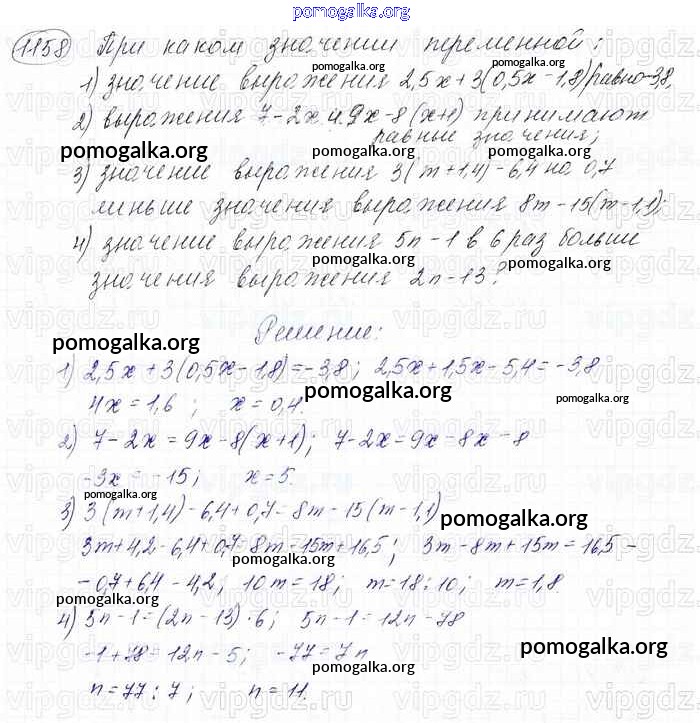 pomogalka.org
1158 При каком значении переменной:
1) значение выражения 2,5x+3(0,5x-1,8) равно -3,8;
2) выражения 7-2x и 9x-8(x+1) принимают
равные значения;
3) значение выражения 3(m+1,4)-6,4 на 0,7
меньше значения выражения 8m-15(m-1,1);
4) значение выражения 5n-1 в 6 раз больше
значения выражения 2n-13?
Решение:
1) 2,5x+3(0,5x-1,8)=-3,8; 2,5x+1,5x-5,4=-3,8
4x=1,6; x=0,4.
2) 7-2x=9x-8(x+1); 7-2x=9x-8x-8
-3x=-15; x=5.
3) 3(m+1,4)-6,4+0,7=8m-15(m-1,1)
3m+4,2-6,4+0,7=8m-15m+16,5; 3m-8m+15m=16,5-
-0,7+6,4-4,2; 10m=18; m=18:10; m=1,8
4) 5n-1=(2n-13)·6; 5n-1=12n-78
-1+78=12n-5; -77=7n
n=77:7; n=11.